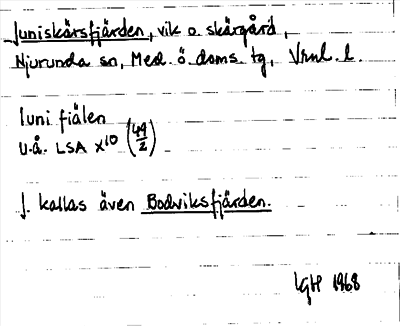 Juniskärsfjärden, vik o. skärgård,
Njurunda sn, Med. ö. doms. tg, Vrnl. l.
Iuni fiälen
u.å. LSA X10 (49/2)
J. kallas även Bodviksfjärden.
LgH 1968